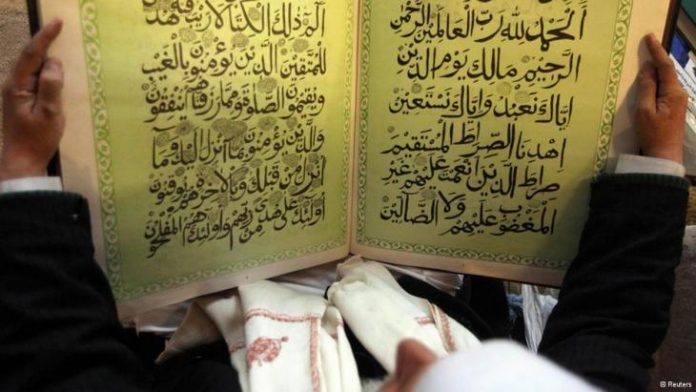 اَلْحَمْدُ لِلّٰهِ رَبِّ الْعَالَمِينَ الرَّحْمٰنِ
الرَّحِيْمِ مَالِكِ يَوْمِ الدِّيْنِ
اِيَّاكَ نَعْبُدُ وَاِيَّاكَ نَسْتَعِيْنُ
اِهْدِنَا الصِّرَاطَ الْمُسْتَقِيْمَ
صِرَاطَ الَّذِيْنَ اَنْعَمْتَ عَلَيْهِمْ غَيْرِ
الْمَغْضُوْبِ عَلَيْهِمْ وَلَا الضَّالِّيْنَ
الٓمّ ذٰلِكَ الْكِتَابُ لَا رَيْبَ فِيْهِ هُدًى
لِلْمُتَّقِيْنَ الَّذِيْنَ يُؤْمِنُوْنَ بِالْغَيْبِ
وَيُقِيْمُوْنَ الصَّلٰوةَ وَمِمَّا رَزَقْنَاهُمْ يُنْفِقُوْنَ
وَالَّذِيْنَ يُؤْمِنُوْنَ بِمَا اُنْزِلَ اِلَيْكَ وَمَا
اُنْزِلَ مِنْ قَبْلِكَ وَبِالْاٰخِرَةِ هُمْ يُوْقِنُوْنَ
اُولٰئِكَ عَلٰى هُدًى مِنْ رَبِّهِمْ وَاُولٰئِكَ هُمُ الْمُفْلِحُوْنَ
Reuters